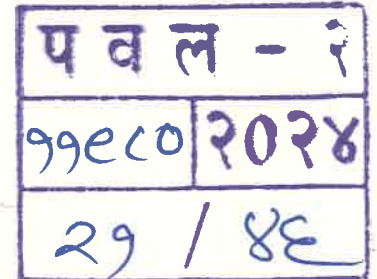 पवल - २
११९८० २०२४
२१ / ४६